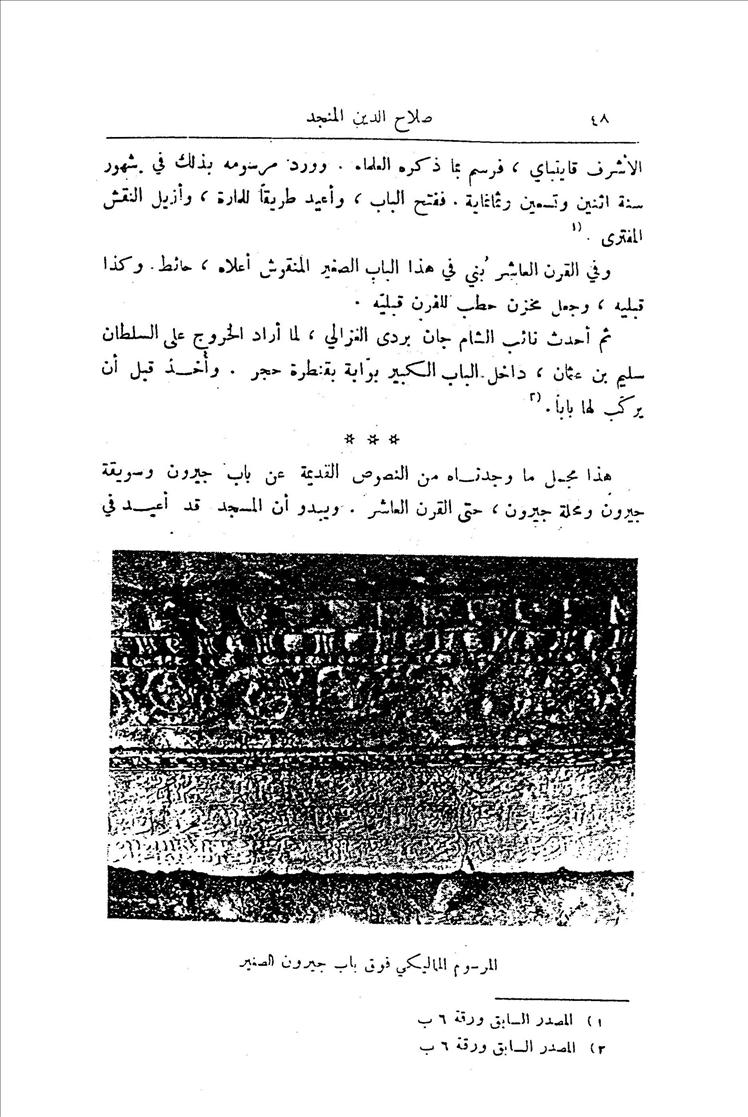 ٤٨ صلاح الدين المنجد
الأشرف قايتباي ، فرسم بما ذكره العلماء . وورد مرسومه بذلك في شهور
سنة اثنين وتسعين وثمانماية . ففتح الباب ، وأعيد طريقاً للمارة ، وأزيل النقش
المفترى .(١
وفي القرن العاشر بُني في هذا الباب الصغير المنقوش أعلاه ، حائط . وكذا
قبليه ، وجعل مخزن حطب للفرن قبليّه .
ثم أحدث نائب الشام جان بردى الغزالي ، لما أراد الخروج على السلطان
سليم بن عثمان ، داخل الباب الكبير بوّابة بقنطرة حجر . وأُخذ قبل أن
يركّب لها باباً .(٢
* * *
هذا مجمل ما وجدناه من النصوص القديمة عن باب جيرون وسويقة
جيرون ومحلة جيرون ، حتى القرن العاشر . ويبدو أن المسجد قد أعيد في
المرسوم المماليكي فوق باب جيرون الصغير
١) المصدر السابق ورقة ٦ ب
٢) المصدر السابق ورقة ٦ ب